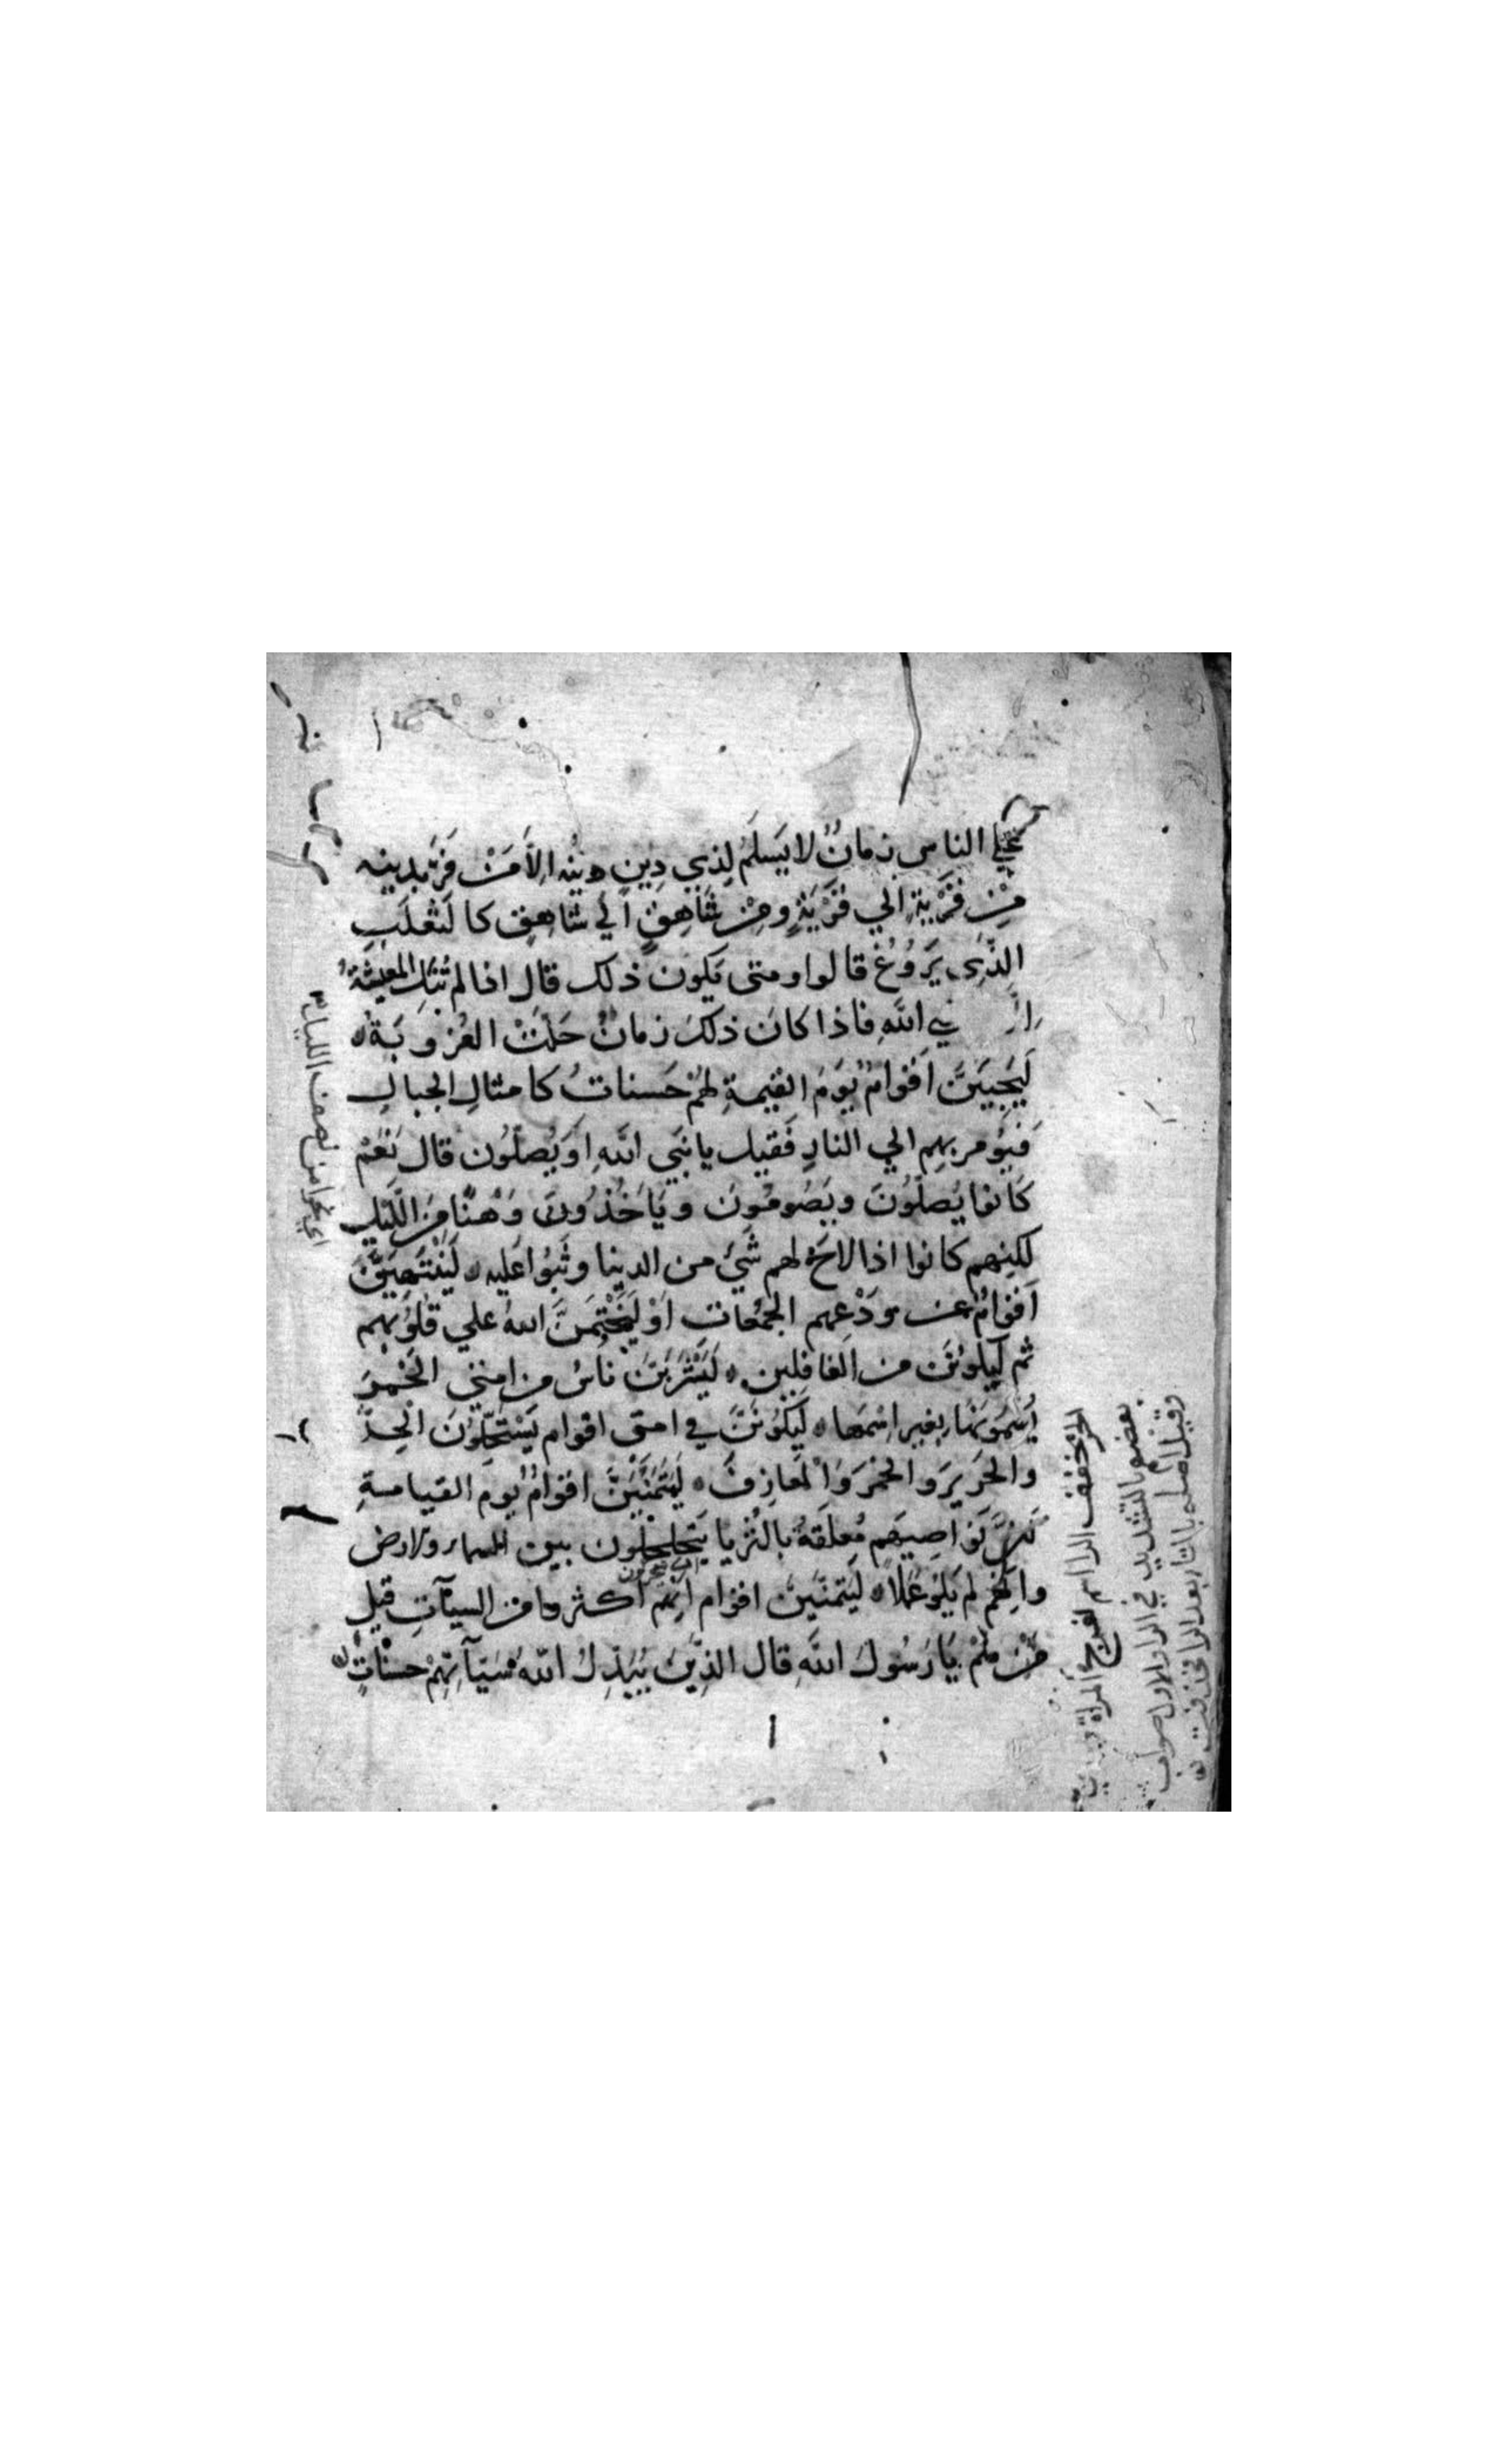 علي الناس زمانٌ لا يَسلَمُ لِذي دِينٍ دينُه اِلاَّ مَنْ فَرَّ بدينه
مِنْ قَرْيَةٍ الي قَرْيَةٍ ومِنْ شَاهِقٍ اَلي شَاهِقٍ كا لثعلَبِ
الذِّى يَرُوُغُ قالوا ومتى يكون ذلك قال اذا لم تُنَل المعيشةُ
نِي اللَّهِ فاذا كانَ ذلكَ زمانٌ حَلَّتْ العُزوبَةُ
لَيَجِيَنَّ اَقوامٌ يَوْمَ القيمةِ لهُمْ حَسناتٌ كا مثالِ الجبالِ
فيُومر بهِم الي النارِ فَقيل يا نَبَي اللَّهِ اَوَيُصَلُّون قال نَعَمْ
كَانوا يُصلُّوُنَ ويَصُومُونَ ويَاخُذُونَ وَهْنًا مِنَ اللَّيلِ
لكنِهم كانوا اذا لاحَ لهم شَيْئ من الدينا وثَبُوا عَليه لَيَنْتَهِيَنَّ
اَقوامٌ عن ودْعِهم الجُمُعات اَوْ لَيَخْتِمَنَّ اللهُ علي قُلُوبهِم
ثم لَيكونُنَّ من الغافِلين لَيَشْرَبَنَّ ناسٌ من امتي الخَمرَ
يُسَمُّونَها بغيرِ اِسْمَها لَيَكُونَنَّ في امتى اقوام يَسْتَحِلُّوُنَ الحِرَّ
والحَرِيرَ والخمَر وَالْمَعَازِفَ لَيَتَمَنَّيَنَّ اقوامٌ يومَ القيامةِ
اَنَّ نَوَاصِيَهم مُعلقةٌ بالثُريا يَتَجلجلُون بين السماء والارض
واَنَّهُم لم يَلوُ عَملاً لَيَتمنَّيَنَّ اقوام اَنَّهم اَكثروا من السيآتِ قيل
مَنْ هُمْ يَا رَسُولَ اللَّهِ قال الذِّينَ يُبَدِّلُ اللَّهُ سَيّآتِهِمْ حسناتٍ
اي نحوا من نصف الليل
الحر مخفف الراء اسم لفرج المراة
بعضهم بالتشديد في الراء والاول صواب
وقيل اصله